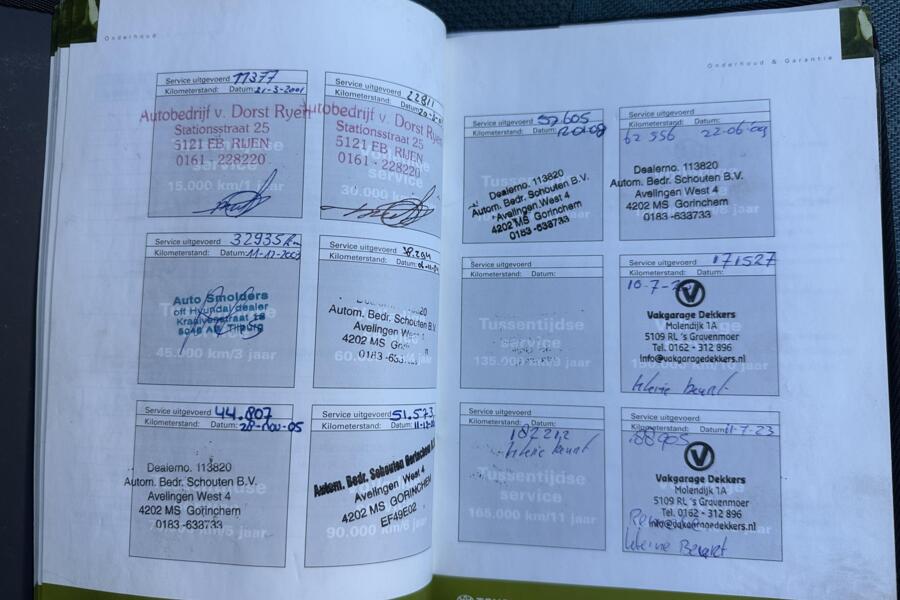 Onderhoud
Service uitgevoerd 11377
Kilometerstand: Datum: 21-3-2001
Autobedrijf v. Dorst Ryen
Stationsstraat 25
5121 EB RIJEN
0161 - 228220
service
15.000 km/1 jaar
Service uitgevoerd 22811
Kilometerstand: Datum:
Autobedrijf v. Dorst
Stationsstraat 25
5121 EB RIJEN
0161 - 228220
service
30.000 km/
Service uitgevoerd 32935 km
Kilometerstand: Datum: 11-12-2003
Auto Smolders
off Hyundai dealer
Kraaivenstraat
TILBURG
45.000 km/3 jaar
Service uitgevoerd
Kilometerstand: Datum:
Autom. Bedr. Schouten B.V.
Avelingen West 4
4202 MS GORIN
0183 -
60.000
Service uitgevoerd 44.807
Kilometerstand: Datum: 28-nov-05
Dealerno. 113820
Autom. Bedr. Schouten B.V.
Avelingen West 4
4202 MS Gorinchem
0183 - 633733
Service uitgevoerd 51.573
Kilometerstand: Datum:
Autom. Bedr. Schouten Gorinchem
Avelingen West 4
4202 MS GORINCHEM
EF49E02
90.000 km/6 jaar
Onderhoud & Garantie
Service uitgevoerd 57605
Kilometerstand: Datum:
Dealerno. 113820
Autom. Bedr. Schouten B.V.
Avelingen West 4
4202 MS Gorinchem
0183 - 633733
Service uitgevoerd
Kilometerstand: Datum:
62 556 22-06-09
Dealerno. 113820
Autom. Bedr. Schouten B.V.
Avelingen West 4
4202 MS Gorinchem
0183 - 633733
jaar
Service uitgevoerd
Kilometerstand: Datum:
Tussentijdse
service
135.000 km/9 jaar
Service uitgevoerd 171527
Kilometerstand: Datum:
10-7-
Vakgarage Dekkers
Molendijk 1A
5109 RL 's Gravenmoer
Tel. 0162 - 312 896
info@vakgaragedekkers.nl
150.000 km/10 jaar
kleine beurt
Service uitgevoerd
Kilometerstand: Datum:
kleine beurt
Tussentijdse
service
165.000 km/11 jaar
Service uitgevoerd
Kilometerstand: Datum: 11-7-23
188905
Vakgarage Dekkers
Molendijk 1A
5109 RL 's Gravenmoer
Tel. 0162 - 312 896
info@vakgaragedekkers.nl
kleine Beurt